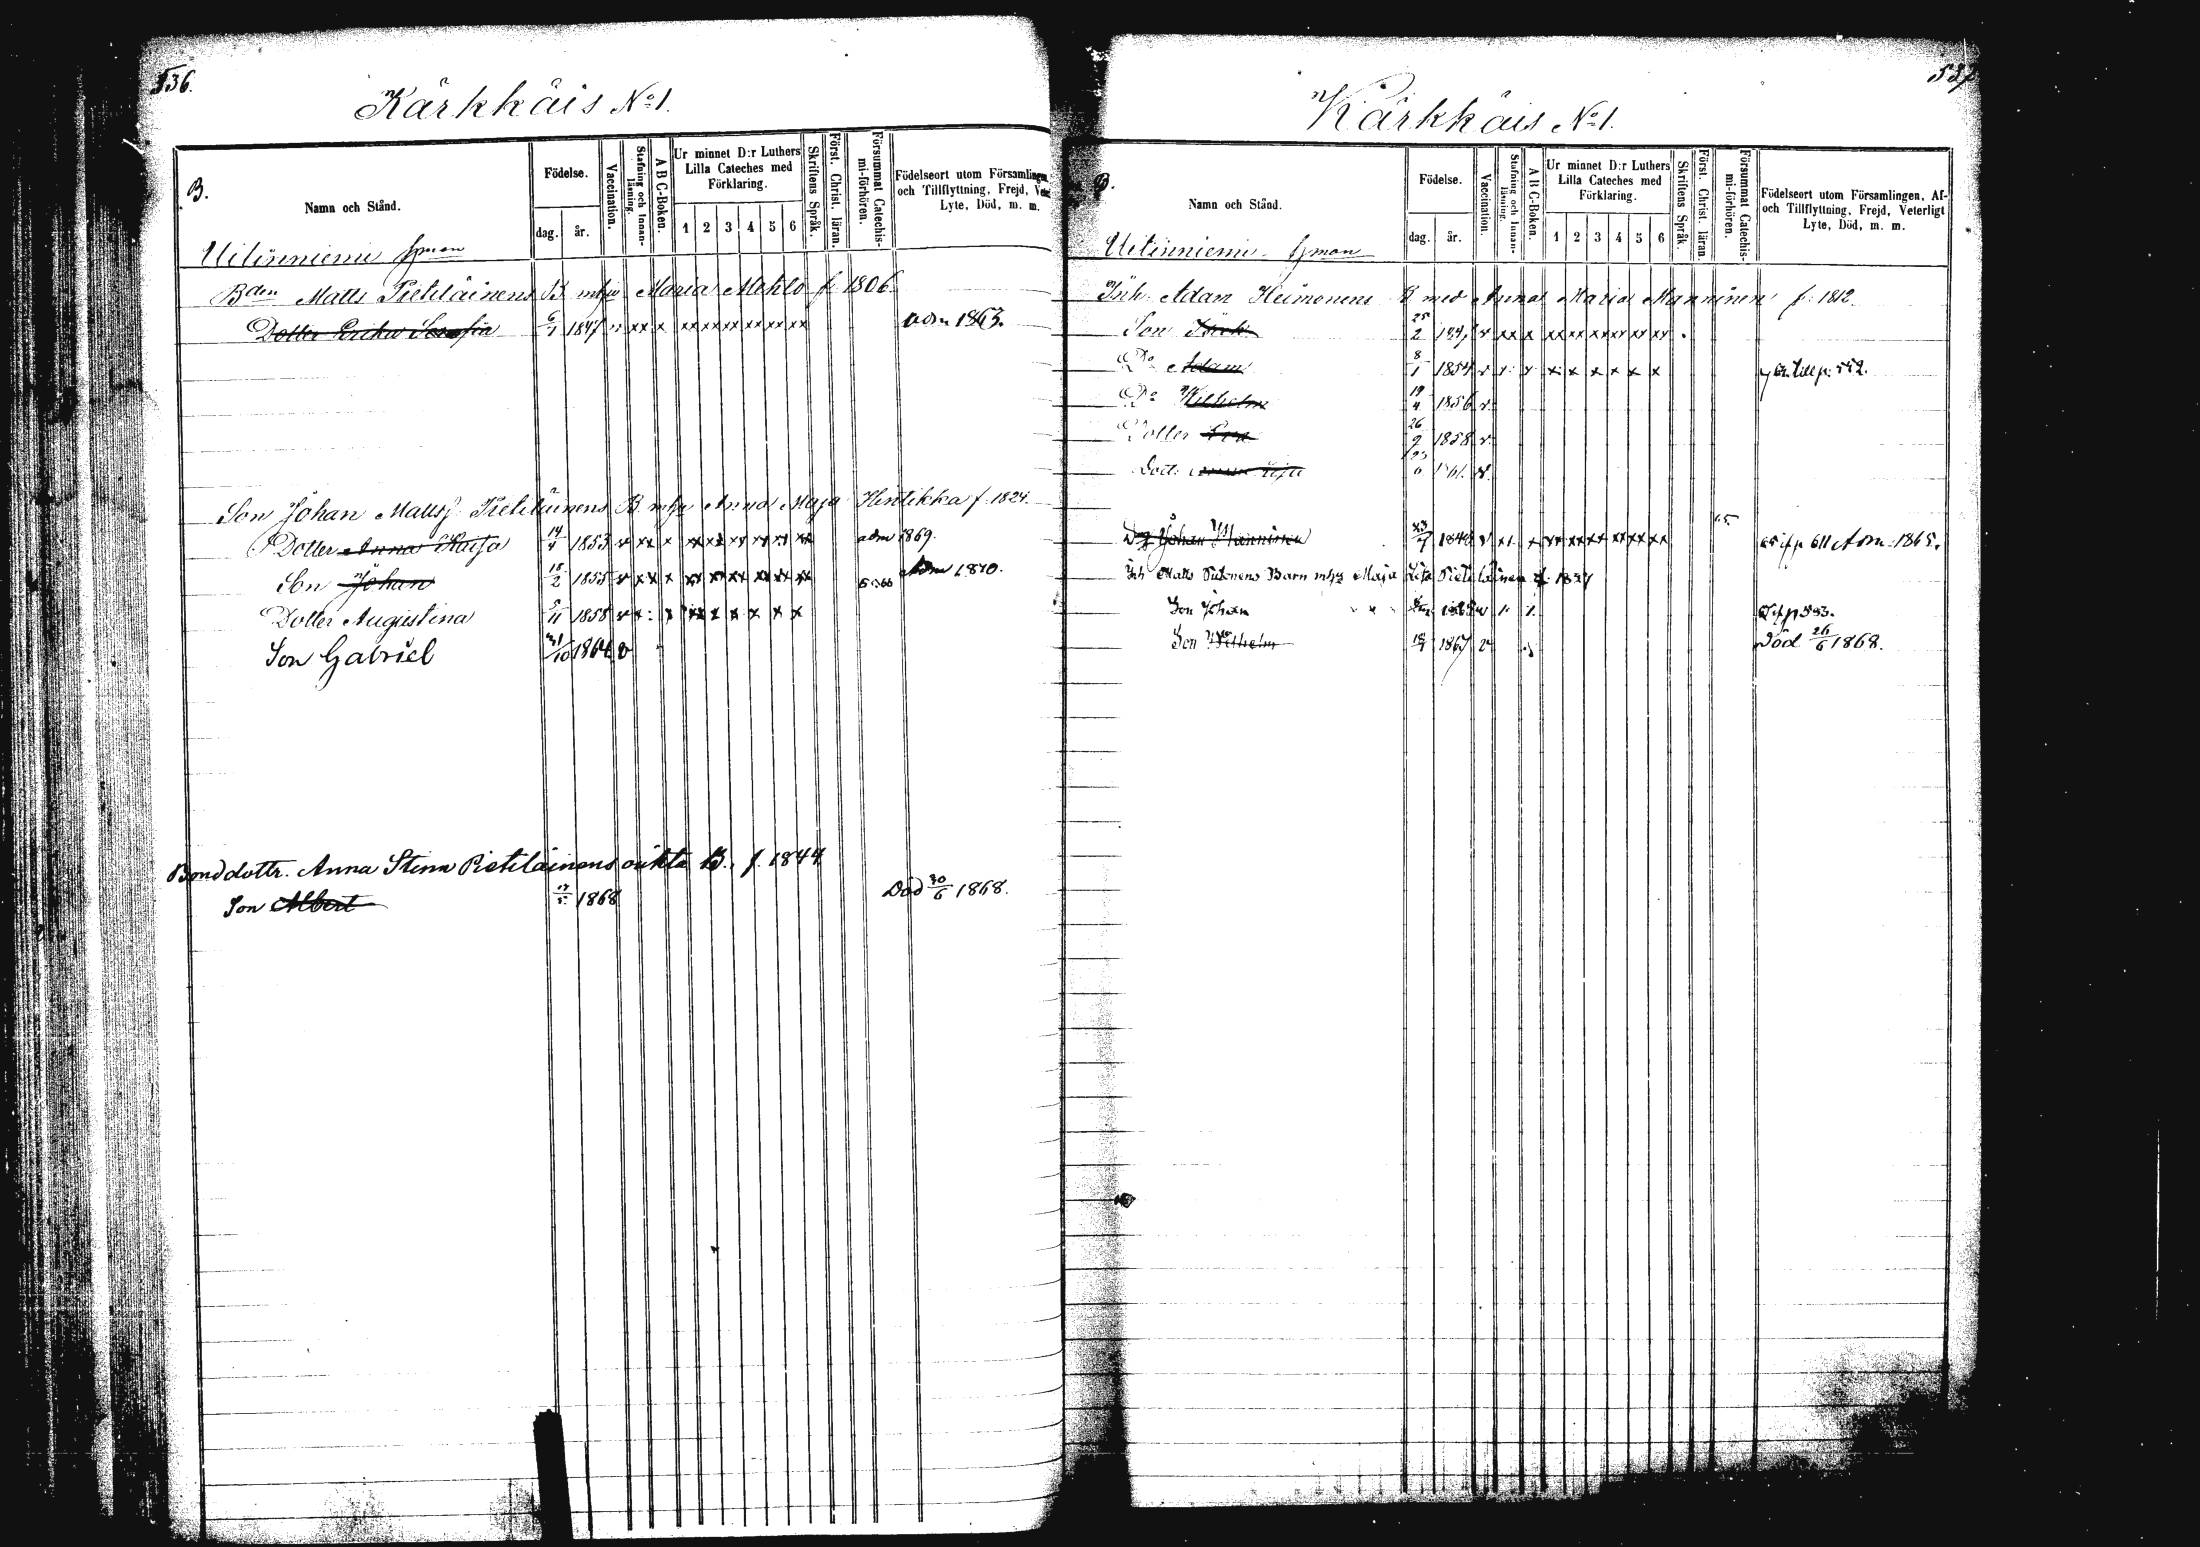 536.
Kärkkäis No 1.
B.
Namn och Stånd.
Födelse.
dag.
år.
Vaccination.
Stafning och Innanläsning.
A B C-Boken.
Ur minnet D:r Luthers Lilla Cateches med Förklaring.
1 2 3 4 5 6
Skriftens Språk.
Först. Christ. läran.
Försummat Catechismi-förhören.
Födelseort utom Församlingen,
och Tillflyttning, Frejd,
Lyte, Död, m. m.
Uitinniemi
Bden Matts Pietiläinens B. Maria Mehto f. 1806.
Dotter Erika Serafia 6/1 1847 v xx x xx xx xx xx xx xx adm 1863.
Son Johan Matts Pietiläinens B. Anna Maja Hintikka f. 1824.
Dotter Anna Kaisa 14/4 1853 v xx x xx xx xx xx xx xx adm 1869.
Son Johan 15/2 1855 v xx x xx xx xx xx xx xx Adm 1870.
Dotter Augustina 5/11 1858 v
Son Gabriel 31/10 1864 v
Bonddottr. Anna Stina Pietiläinens oäkta B. f. 1844
Son Albert 1868 Död 30/6 1868.
537
Kärkkäis No 1.
B.
Namn och Stånd.
Födelse.
dag.
år.
Vaccination.
Stafning och Innanläsning.
A B C-Boken.
Ur minnet D:r Luthers Lilla Cateches med Förklaring.
1 2 3 4 5 6
Skriftens Språk.
Först. Christ. läran.
Försummat Catechismi-förhören.
Födelseort utom Församlingen, Af-
och Tillflyttning, Frejd, Veterligt
Lyte, Död, m. m.
Uitinniemi
Inh. Adam Heimonens B med Anna Maria Manninen f. 1812.
Son 25/2 1847 v xx x xx xx xx xx xx xx
Do Adam 8/1 1854 v x x x x x x till p. 552.
Do Wilhelm 19/4 1856 v.
Dotter Eva 26/9 1858 v.
Dott. v.
Johan Manninen 1848 v p 611 Adm. 1865.
Inh Matts Barn Maja Lisa Pietiläinen f. 1837
Son Johan v p 593.
Son Wilhelm 1867 v Död 26/6 1868.